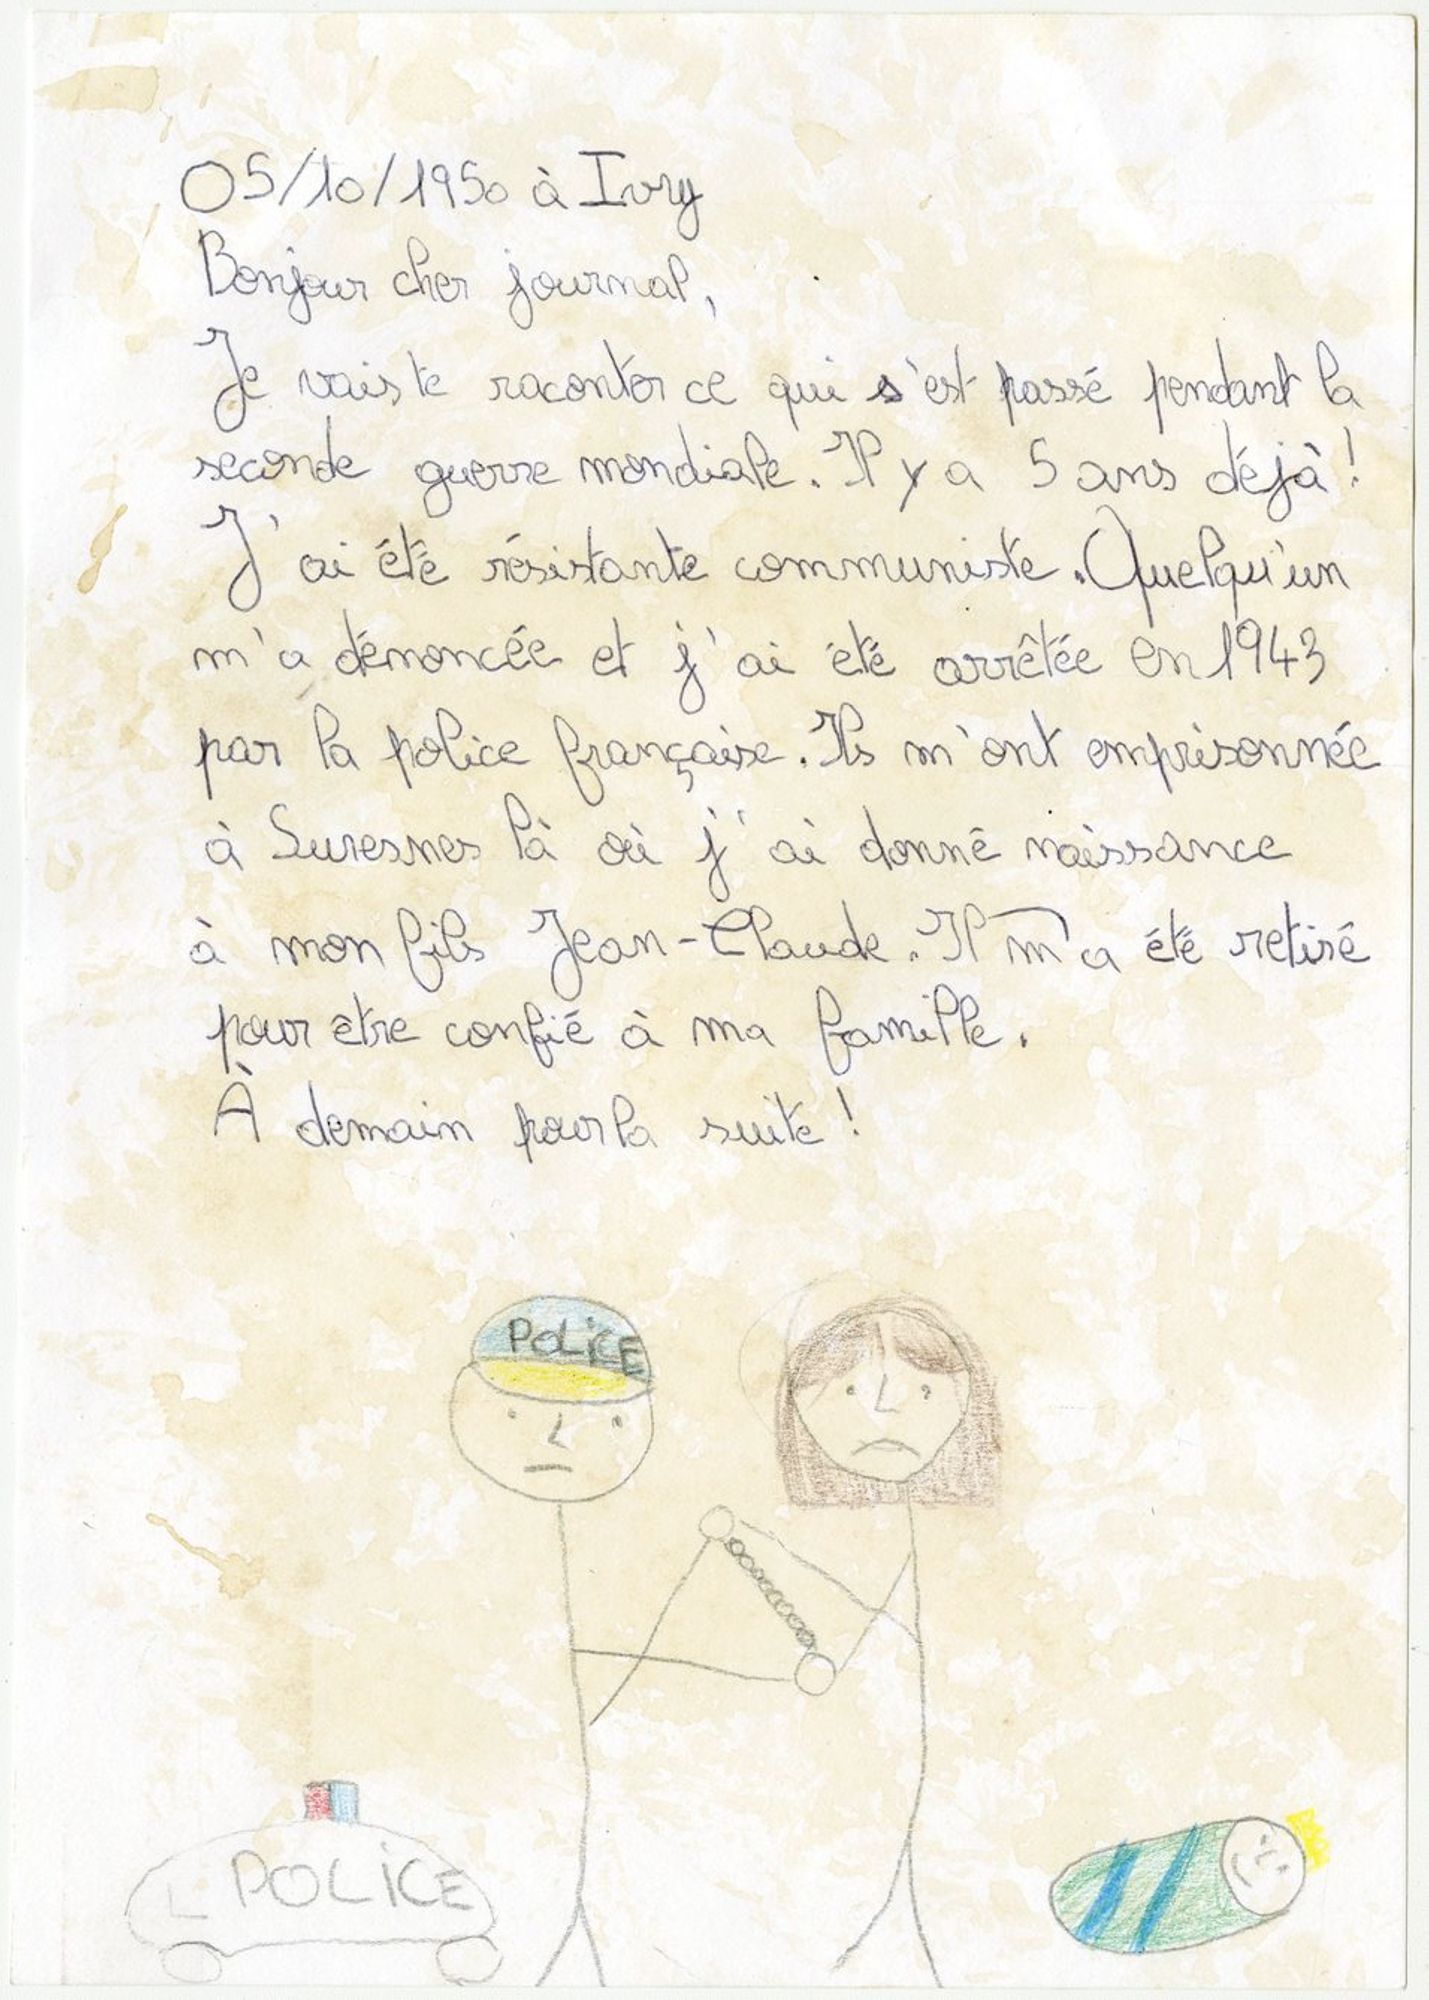 05/10/1950 à Ivry
Bonjour cher journal,
Je vais te raconter ce qui s'est passé pendant la
seconde guerre mondiale. Il y a 5 ans déjà !
J'ai été résistante communiste. Quelqu'un
m'a dénoncée et j'ai été arrêtée en 1943
par la police française. Ils m'ont emprisonnée
à Suresnes là où j'ai donné naissance
à mon fils Jean-Claude. Il m'a été retiré
pour être confié à ma famille.
À demain pour la suite !
POLICE
POLICE